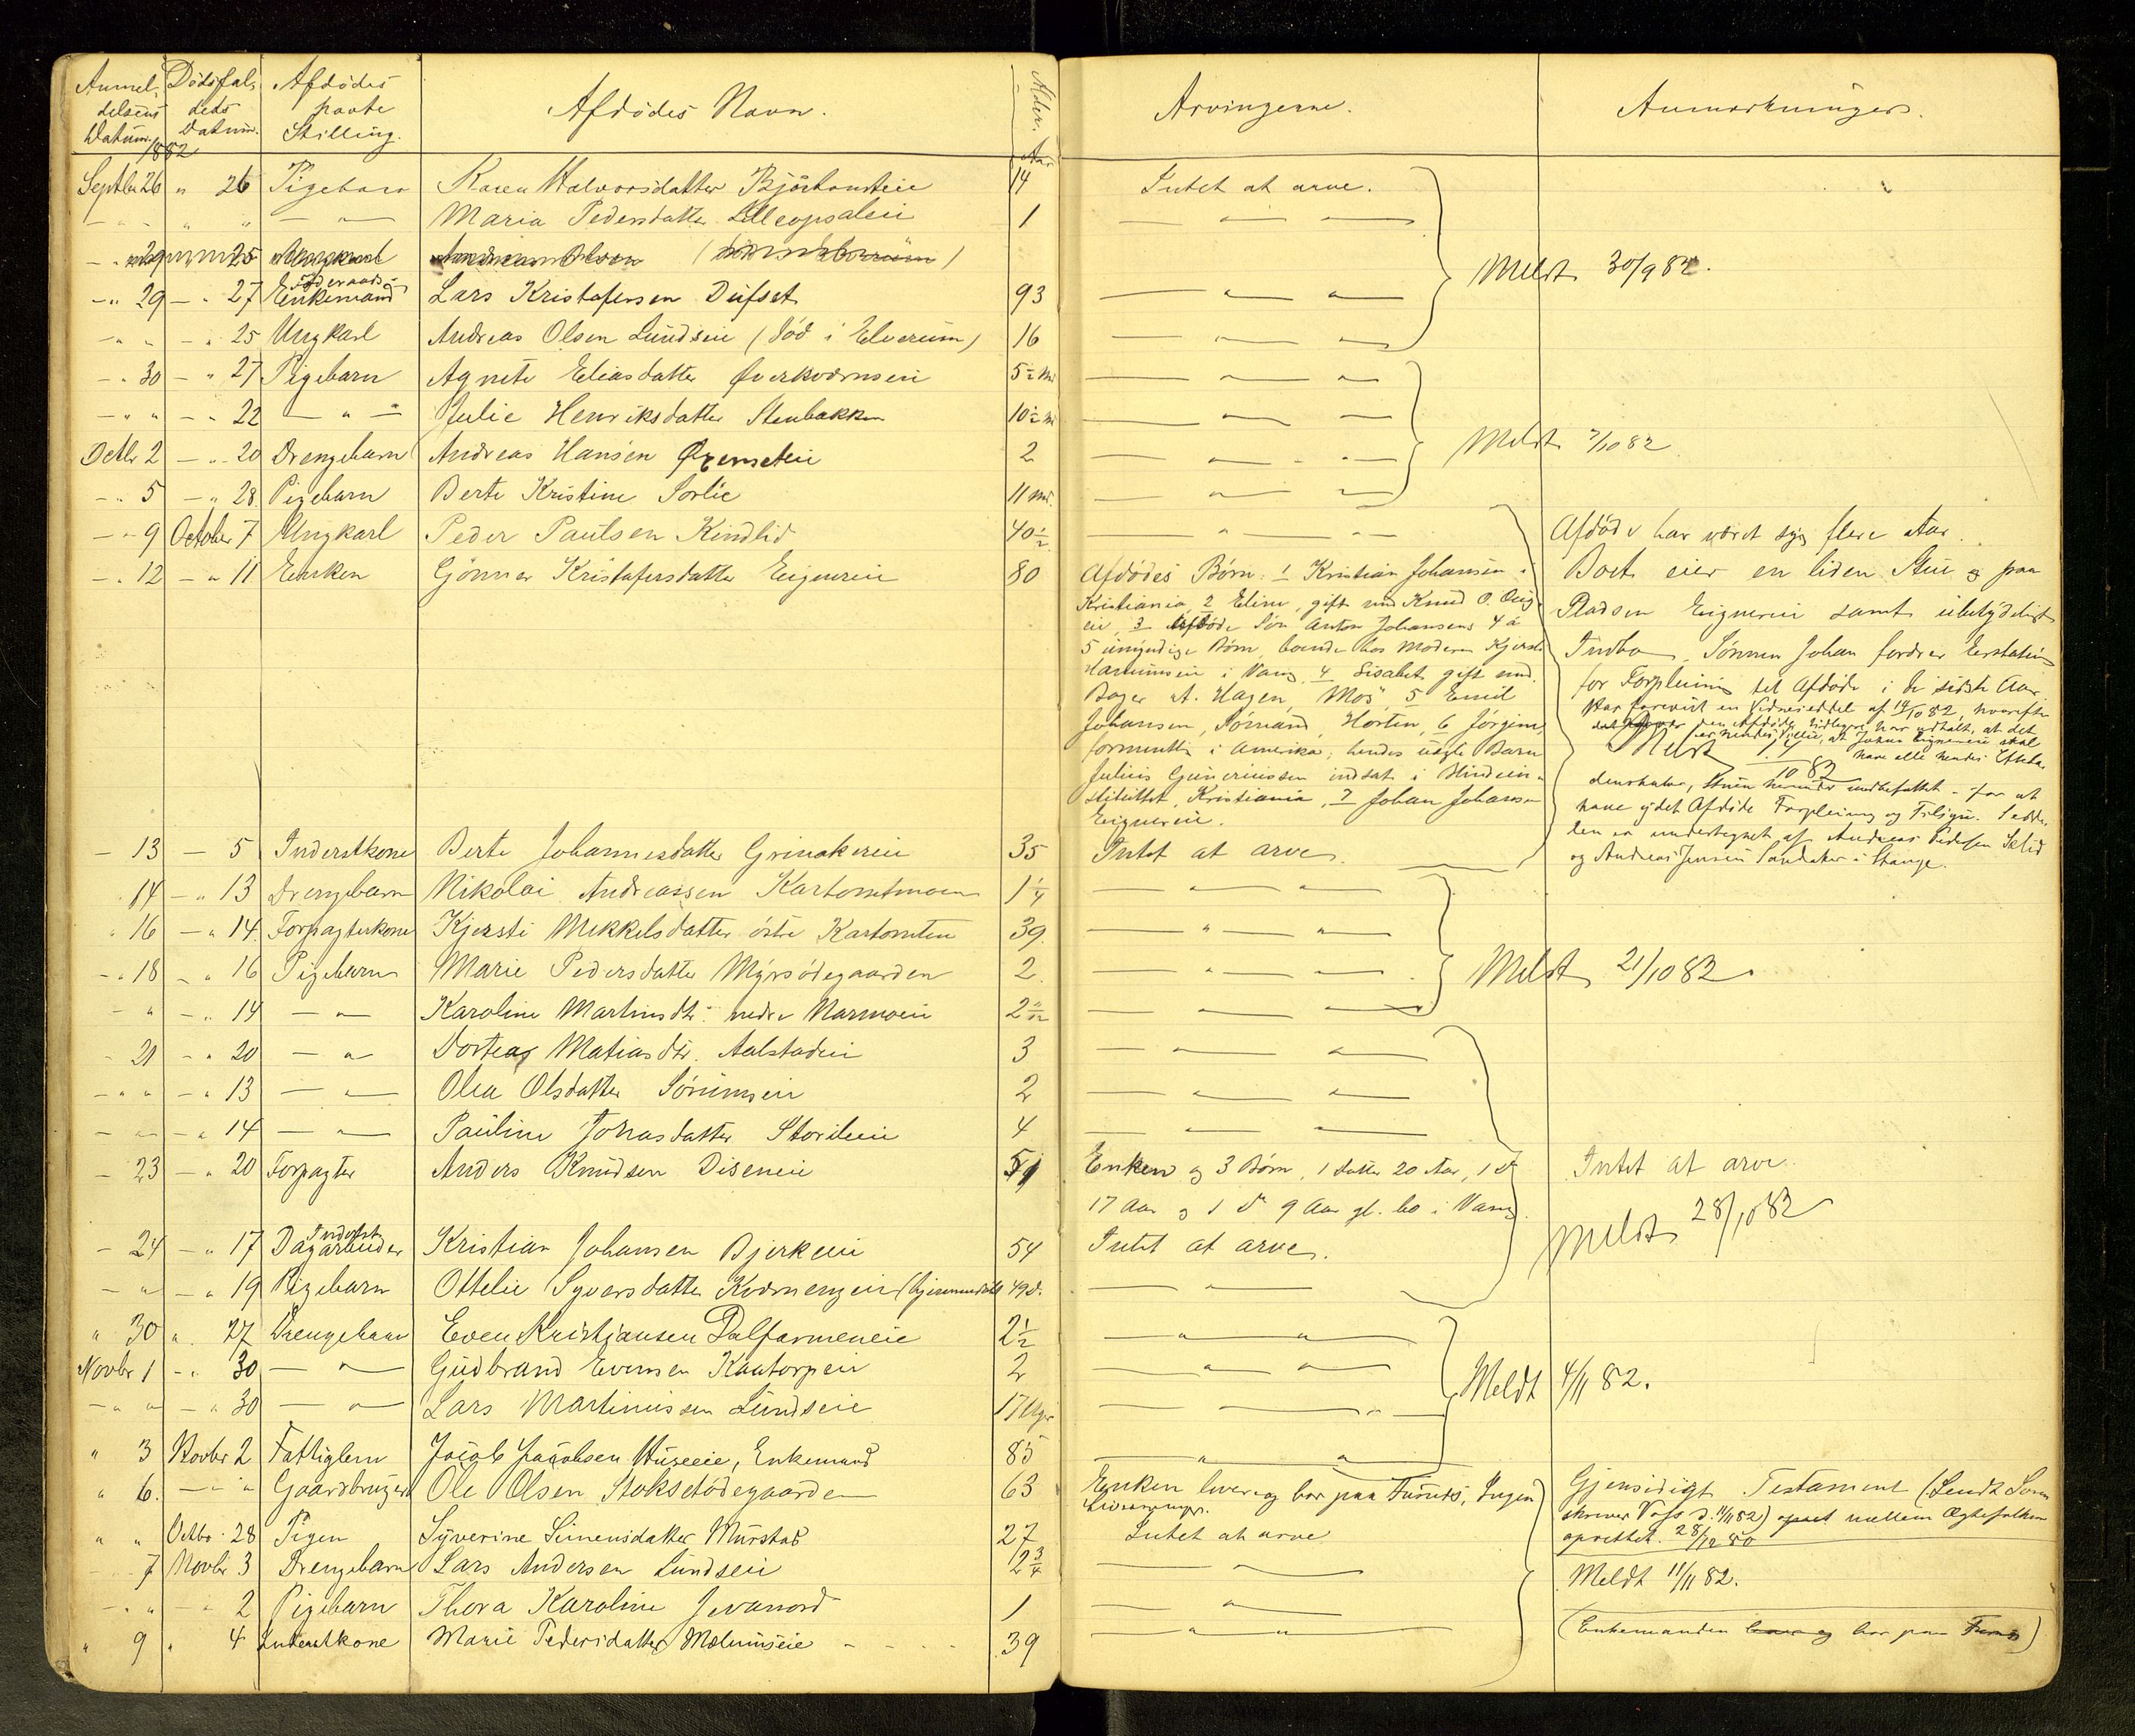 Anmel- Dødsfal- Afdødes
delsens dets paate Afdødes Navn. Alder. Arvingerne. Anmærkninger.
Datum. Datum. Stilling.
1882 Aar
Septbr 26 " 26 Pigebarn Karen Halvorsdatter 14 Intet at arve.
- " - " " — " — Maria Pedersdatter Lilleopsaleie 1 — " — —
- " 29 25 Andreas Olsen
Føderaads-
- " 29 - " 27 Enkemand Lars Kristofersen Dufset 93 — " — " — Meldt 30/9 82.
- " " - " 25 Ungkarl Andreas Olsen Lundseie (død i Elverum) 16 — " — " —
- " 30 - " 27 Pigebarn Agnete Eliasdatter Øverkværnseie 5½ Md — " — " —
- " " - " 22 — " — Julie Henriksdatter Stenbakken 10½ Md — " — —
Octbr 2 - " 20 Drengebarn Andreas Hansen 2 — " — " — Meldt 7/10 82
- " 5 - " 28 Pigebarn Berte Kristine Sørlie 11 Md. — " — " —
- " 9 October 7 Ungkarl Peder Paulsen Kindlid 40½ — " — " — Afdøde har været syg flere Aar.
- " 12 - " 11 Enken Gønner Kristofersdatter Eignereie 80 Afdødes Børn: 1 Kristian Johansen i Boet eier en liden Stue og paa
Kristiania, 2 Eline, gift med Knud O. Pladsen Eignereie samt ubetydeligt
eie, 3 Afdøde Søn Anton Johansens 4 à
5 umyndige Børn, boende hos Moderen Kjersti Indbo. Sønnen Johan fordrer Erstatning
i Vang, 4 Lisabet gift med for Forpleining til Afdøde i de sidste Aar.
Bager A. Hagen, Mos, 5 Emil Har forevist en Vidneseddel af 14/10 82, hvorefter
Johansen, Sømand, Horten, 6 Jørgine den Afdøde tidligere har udtalt, at det
formentl. i Amerika; hendes uægte Barn er hendes Villie, at Johan Eignereie skal
Meldt 14/10 82 have alle hendes Efterla-
Julius Guneriussen indsat i Blindein- denskaber, Stuen herunder indbefattet - for at
stituttet, Kristiania, 7 Johan Johansen have ydet Afdøde Forpleining og Tilsyn. Sedde-
Eignereie. len er undertegnet af Andreas Pedersen
- 13 - 5 Inderstkone Berte Johannesdatter Grinakereie 35 Intet at arve. og Andreas Jensen Sandaker i Stange.
14 - " 13 Drengebarn Nikolai Andreassen Kartomtmoen 1¼ — " — " —
" 16 - " 14 Forpagterkone Kjersti Mikkelsdatter østre Kartomten 39. — " — " —
- " 18 - " 16 Pigebarn Marie Pedersdatter Myrsødegaarden 2. — " — " — Meldt 21/10 82.
- " - " 14 — " — Karoline Martinsdtr. nedre Narmoeie 2 — " — " —
- 21 - " 20 — " — Dortea Matiasdtr. Aalstadeie 3 — " — " —
- " " - " 13 — " — Olea Olsdatter Sørumseie 2 — " — " —
- " - " 14 — " — Pauline Johasdatter Storihleie 4 — " — " —
- 23 - " 20 Forpagter Anders Knudsen Diseneie 51 Enken og 3 Børn, 1 Datter 20 Aar, 1 D. Intet at arve.
17 Aar og 1 D. 9 Aar gl. bo i Vang.
Inderst
- 24 - " 17 Dagarbeider Kristian Johansen Bjerkeeie 54 Intet at arve. Meldt 28/10 82
- " - " 19 Pigebarn Ottelie Syversdatter Kværnengeie (hjemmedøbt 49 D. — " —
" 30 " 27 Drengebarn Even Kristjansen Dalfarmeneie 2½ — " — " —
Novbr 1 - " 30 — " — Gudbrand Evensen Kaatorpeie 2 — " — " — Meldt 4/11 82.
- " " - " 30 — " — Lars Martiniussen Lundseie 17 Uger — " — " —
" 3 Novbr 2 Fattiglem Jacob Jacobsen Huseeie, Enkemand 85 — " — " —
" 6. — " " Gaardbruger Ole Olsen Stoksetødegaarden 63 Enken lever og bor paa Furnes, Ingen Gjensidigt Testament (Sendt Soren-
Livsarvinger. skriver Vogt d. 11/11 82) mellem Ægtefolkene
" " Octbr. 28 Pigen Syverine Simensdatter Murstad 27 Intet at arve oprettet 28/12 80
- " 7 Novbr 3 Drengebarn Lars Andersen Lundseie 2¾ — " — Meldt 11/11 82.
- " " - " 2 Pigebarn Thora Karoline Jevanord 1 — " —
" 9 " 4 Inderstkone Marie Pedersdatter Mælumseie - - - - 39 — " — " — (Enkemanden lever og bor paa Furnes)